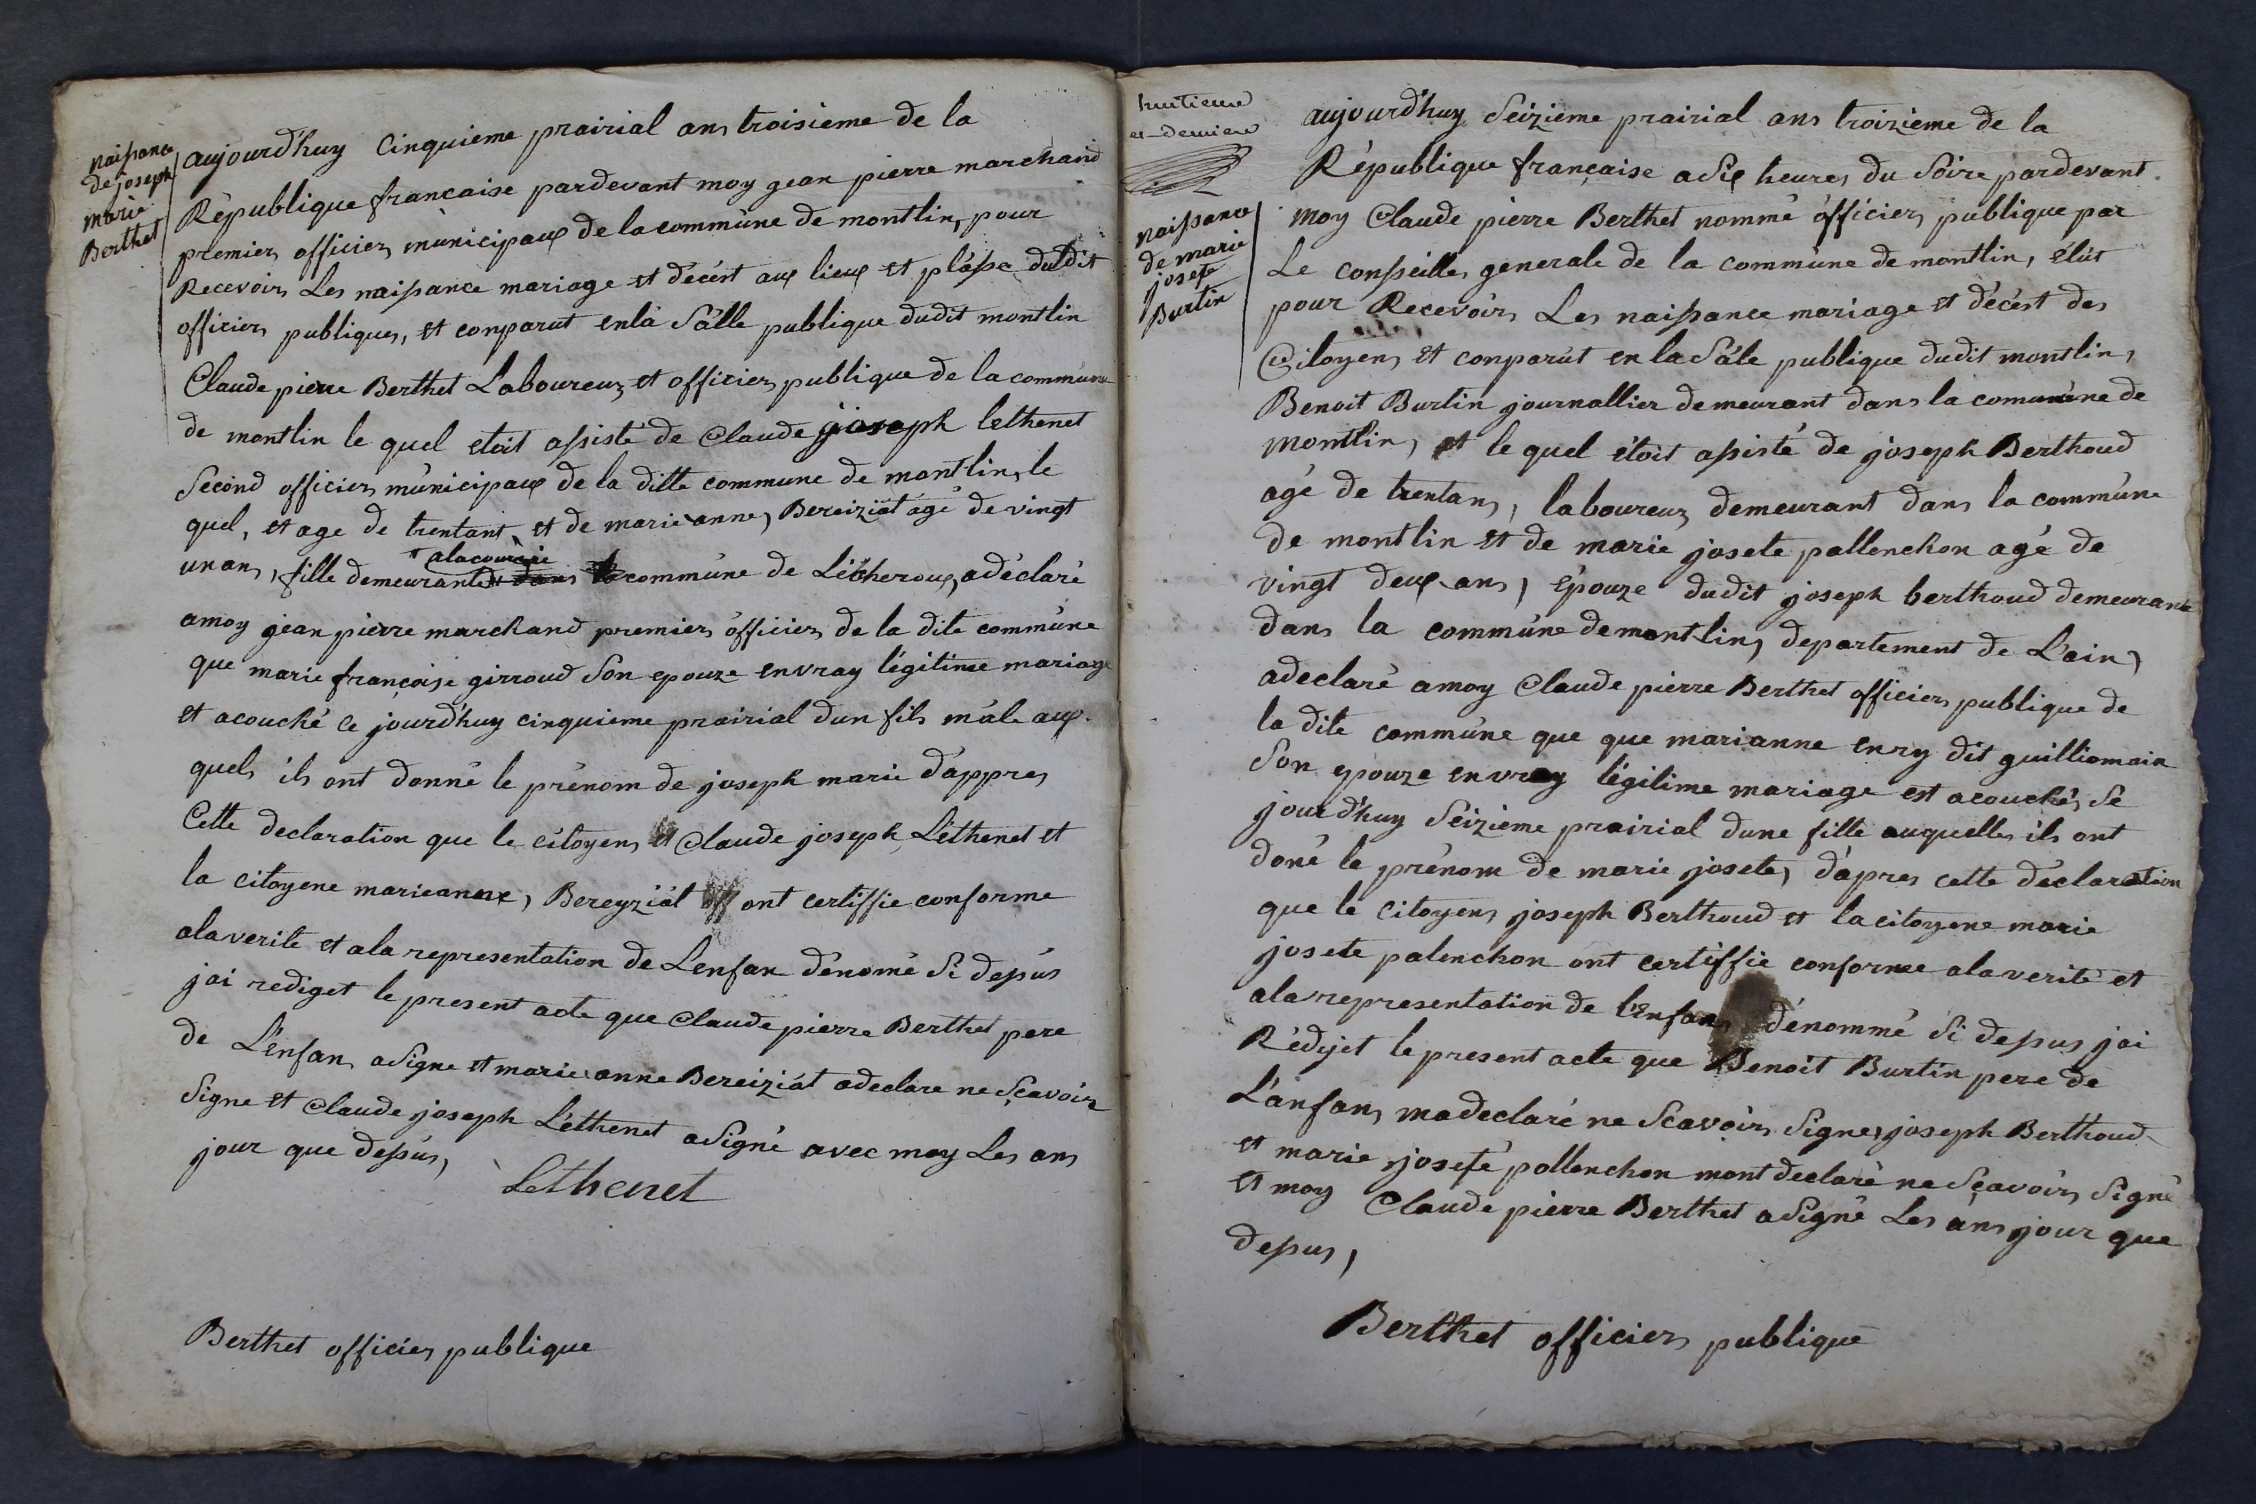 naissance
de joseph
marie
Berthet
aujourd'huy Cinquieme prairial ans troisieme de la
République francaise pardevant moy gean pierre marchand
premiers officiers municipaux de la commune de montlin, pour
Recevoirs Les naissance mariage et décést aux lieux et plásse dudit
officiers publiques, et comparut en la Sálle publique dudit montlin
Claude pierre Berthet Laboureurs et officiers publique de la commune
de montlin le quel etoit assisté de Claude joseph lethenet
Second officiers municipaux de la ditte commune de montlin, le
quel, et age de trentant, et de marie anne, Bereiziat agé de vingt
un ans, fille demeurante dans la commune de Lécheroux, adéclaré
alacourerie
amoy gean pierre marchand premiers officiers de la dite commune
que marie françoise girroud Son epouze en vray légitime mariage
et acouché ce jourd'huy cinquieme prairial dun fils mále aux
quels ils ont donné le prénom de joseph marie d'appres
Cette declaration que le citoyens et Claude joseph Léthenet et
la citoyene marieanne, Bereyziát ont certiffie conforme
alaverite et ala representation de Lenfan dénomé Si desus
jai rediget le present acte que Claude pierre Berthet pere
de L'enfan, asigne et marie anne Bereiziát adeclare ne Sçavoir
Signe et Claude joseph Léthenet aSigné avec moy Les ans
jour que dessus,
Lethenet
Berthet officiers publique
huitieme
et derniere
naissance
de marie
josete
Burtin
aujourd'huy Seizieme prairial ans troizieme de la
République française aSix heures du Soire pardevant
moy Claude pierre Berthet nommé officiers publique par
Le conseille generale de la commune de montlin, élút
pour Recevoirs Les naissance mariage et décést des
Citoyens et comparut en la Sále publique dudit montlin,
Benoit Burtin journallier demeurant dans la comunene de
montlin, et le quel étoit assisté de joseph Berthoud
agé de trentans, laboureurs demeurant dans la commune
de montlin et de marie josete pallenchon agé de
vingt deux ans, épouze dudit joseph berthoud demeurante
dans la commune de montlin, departement de L'ain,
adeclaré amoy Claude pierre Berthet officiers publique de
la dite commune que que marianne enry dit guilliomain
Son epouze en vray légitime mariage est acouchés, Se
jourd'huy Seizieme prairial dune fille auquelles ils ont
doné le prénom de marie josete, d'apres cette déclaration
que le citoyens joseph Berthoud et la citoyene marie
josete palenchon ont certiffie conforme alaverité et
alarepresentation de l'Enfans dénommé Si depus jai
Rédijet le present acte que Benoit Burtin pere de
L'anfans, madeclaré ne Scavoirs Signes, joseph Berthoud
et marie josete pallenchon mont declaré ne Sçavoirs Signé
et moy Claude pierre Berthet aSigné Les ans jour que
depus,
Berthet officiers publique